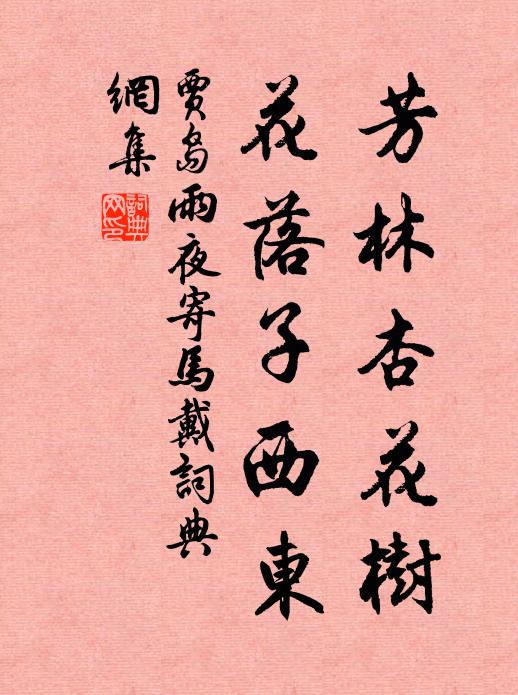 芳林杏花樹
花落子西東
賈島雨夜寄馬戴詞典
網集
詞典
网印